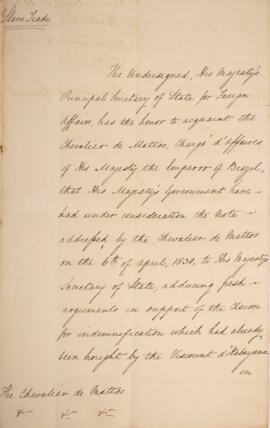 Slave Trade
The Undersigned, His Majesty's
Principal Secretary of State for Foreign
Affairs, has the honor to acquaint the
Chevalier de Mattos, Chargé d'Affaires
of His Majesty the Emperor of Brazil,
that His Majesty's Government have
had under consideration the Note
addressed by the Chevalier de Mattos
on the 6th of April, 1830, to His Majesty's
Secretary of State, adducing fresh
arguments in support of the Claim
for indemnification which had already
been brought by the Viscount d'Itabayana
in
The Chevalier de Mattos
&c &c &c